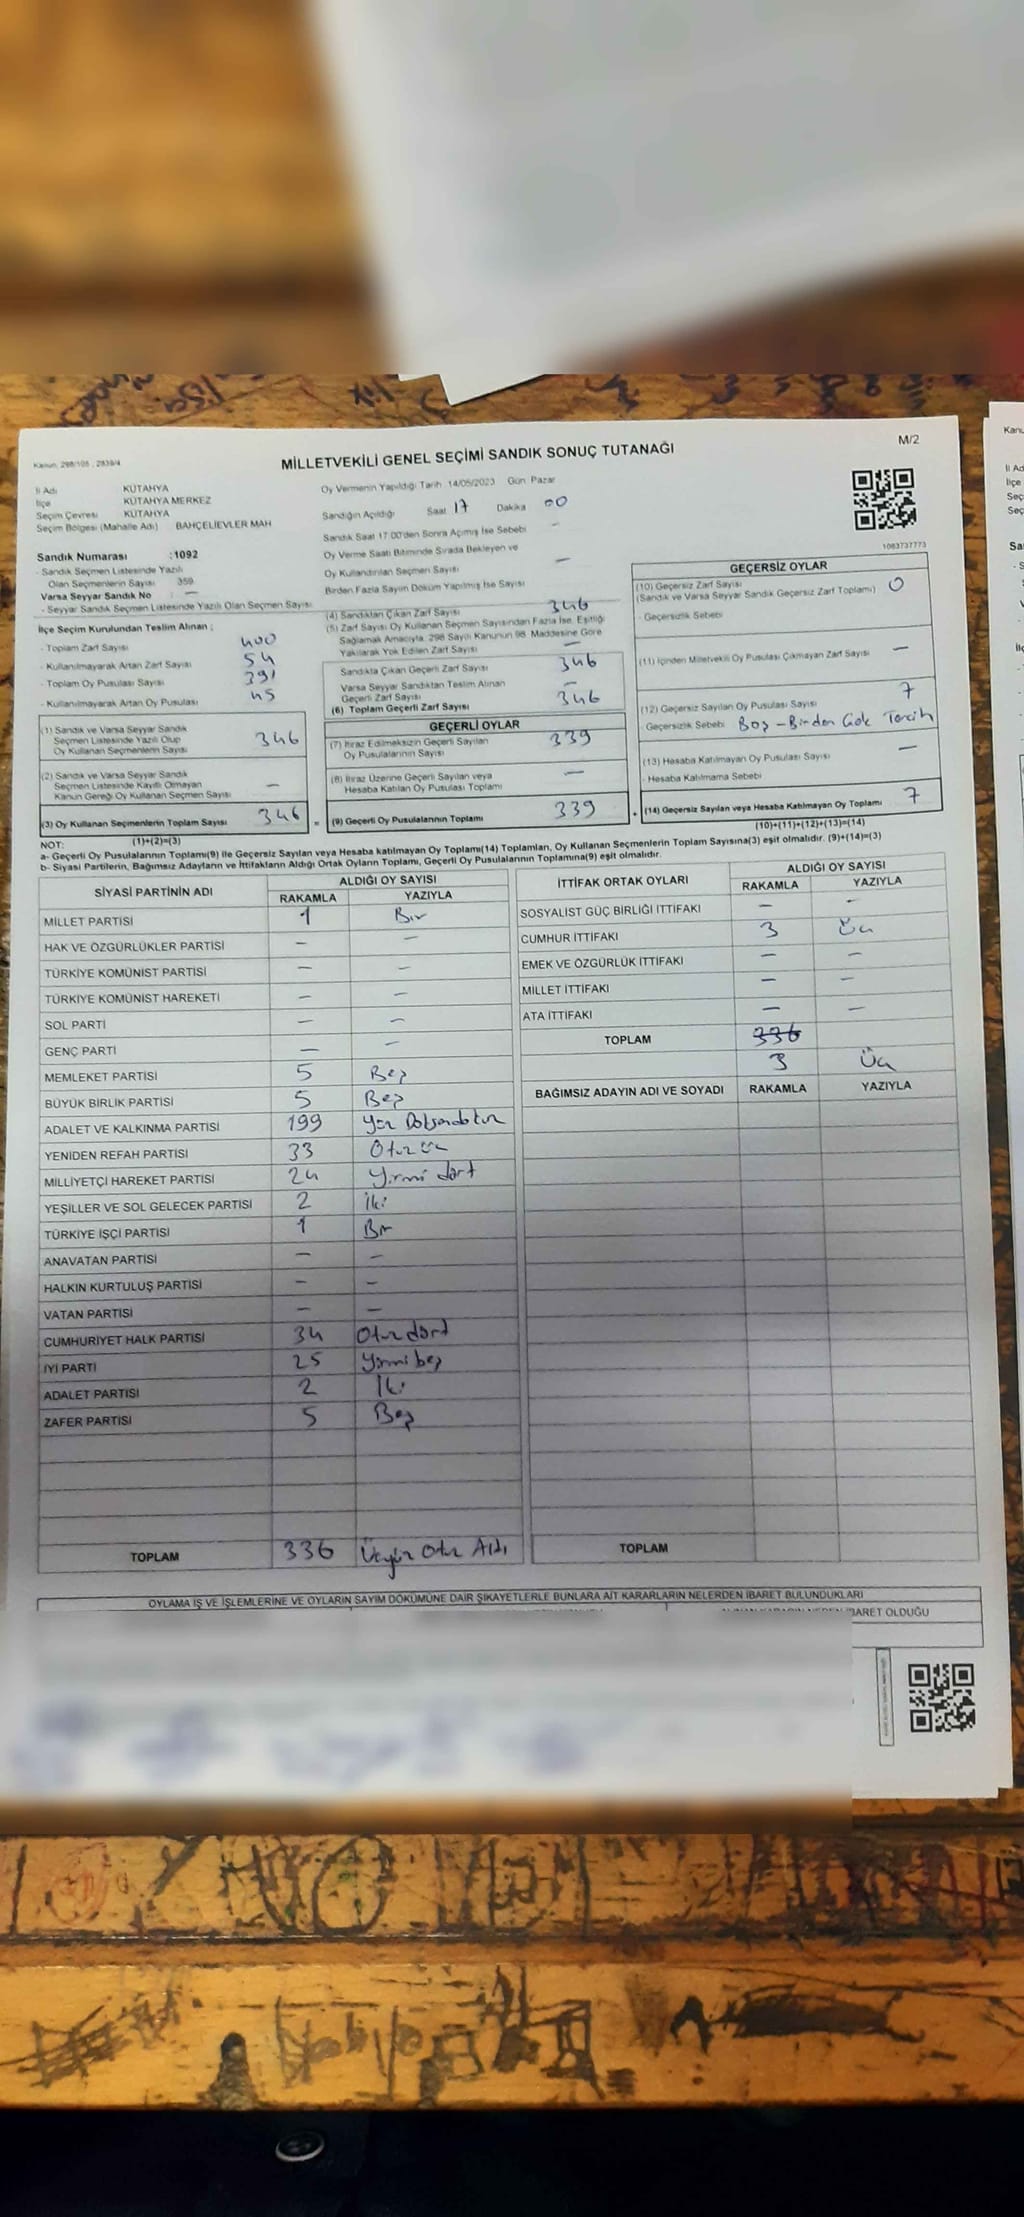 Kanun: 298/105 , 2839/4
MİLLETVEKİLİ GENEL SEÇİMİ SANDIK SONUÇ TUTANAĞI
M/2
İl Adı KÜTAHYA
İlçe KÜTAHYA MERKEZ
Seçim Çevresi KÜTAHYA
Seçim Bölgesi (Mahalle Adı) BAHÇELİEVLER MAH
Oy Vermenin Yapıldığı Tarih 14/05/2023 Gün Pazar
Sandığın Açıldığı Saat 17 Dakika 00
Sandık Saat 17:00'den Sonra Açılmış İse Sebebi –
Oy Verme Saati Bitiminde Sırada Bekleyen ve
Oy Kullandırılan Seçmen Sayısı –
Birden Fazla Sayım Döküm Yapılmış İse Sayısı
1083737773
Sandık Numarası :1092
- Sandık Seçmen Listesinde Yazılı
Olan Seçmenlerin Sayısı 359
Varsa Seyyar Sandık No : –
- Seyyar Sandık Seçmen Listesinde Yazılı Olan Seçmen Sayısı
İlçe Seçim Kurulundan Teslim Alınan ;
- Toplam Zarf Sayısı 400
- Kullanılmayarak Artan Zarf Sayısı 54
- Toplam Oy Pusulası Sayısı 391
- Kullanılmayarak Artan Oy Pusulası 45
(1) Sandık ve Varsa Seyyar Sandık
Seçmen Listesinde Yazılı Olup
Oy Kullanan Seçmenlerin Sayısı 346
(2) Sandık ve Varsa Seyyar Sandık
Seçmen Listesinde Kayıtlı Olmayan
Kanun Gereği Oy Kullanan Seçmen Sayısı –
(3) Oy Kullanan Seçmenlerin Toplam Sayısı 346 =
(1)+(2)=(3)
(4) Sandıktan Çıkan Zarf Sayısı 346
(5) Zarf Sayısı Oy Kullanan Seçmen Sayısından Fazla İse, Eşitliği
Sağlamak Amacıyla, 298 Sayılı Kanunun 98. Maddesine Göre
Yakılarak Yok Edilen Zarf Sayısı –
Sandıkta Çıkan Geçerli Zarf Sayısı 346
Varsa Seyyar Sandıktan Teslim Alınan
Geçerli Zarf Sayısı –
(6) Toplam Geçerli Zarf Sayısı 346
GEÇERLİ OYLAR
(7) İtiraz Edilmeksizin Geçerli Sayılan
Oy Pusulalarının Sayısı 339
(8) İtiraz Üzerine Geçerli Sayılan veya
Hesaba Katılan Oy Pusulası Toplamı –
(9) Geçerli Oy Pusulalarının Toplamı 339 +
GEÇERSİZ OYLAR
(10) Geçersiz Zarf Sayısı
(Sandık ve Varsa Seyyar Sandık Geçersiz Zarf Toplamı) 0
- Geçersizlik Sebebi
(11) İçinden Milletvekili Oy Pusulası Çıkmayan Zarf Sayısı –
(12) Geçersiz Sayılan Oy Pusulası Sayısı 7
Geçersizlik Sebebi Boş – Birden Çok Tercih
(13) Hesaba Katılmayan Oy Pusulası Sayısı –
- Hesaba Katılmama Sebebi
(14) Geçersiz Sayılan veya Hesaba Katılmayan Oy Toplamı 7
(10)+(11)+(12)+(13)=(14)
NOT:
a- Geçerli Oy Pusulalarının Toplamı(9) ile Geçersiz Sayılan veya Hesaba Katılmayan Oy Toplamı(14) Toplamları, Oy Kullanan Seçmenlerin Toplam Sayısına(3) eşit olmalıdır. (9)+(14)=(3)
b- Siyasi Partilerin, Bağımsız Adayların ve İttifakların Aldığı Ortak Oyların Toplamı, Geçerli Oy Pusulalarının Toplamına(9) eşit olmalıdır.
SİYASİ PARTİNİN ADI ALDIĞI OY SAYISI
RAKAMLA YAZIYLA
MİLLET PARTİSİ 1 Bir
HAK VE ÖZGÜRLÜKLER PARTİSİ – –
TÜRKİYE KOMÜNİST PARTİSİ – –
TÜRKİYE KOMÜNİST HAREKETİ – –
SOL PARTİ – –
GENÇ PARTİ – –
MEMLEKET PARTİSİ 5 Beş
BÜYÜK BİRLİK PARTİSİ 5 Beş
ADALET VE KALKINMA PARTİSİ 199 Yüz Doksandokuz
YENİDEN REFAH PARTİSİ 33 Otuz üç
MİLLİYETÇİ HAREKET PARTİSİ 24 Yirmi dört
YEŞİLLER VE SOL GELECEK PARTİSİ 2 İki
TÜRKİYE İŞÇİ PARTİSİ 1 Bir
ANAVATAN PARTİSİ – –
HALKIN KURTULUŞ PARTİSİ – –
VATAN PARTİSİ – –
CUMHURİYET HALK PARTİSİ 34 Otuz dört
İYİ PARTİ 25 Yirmi beş
ADALET PARTİSİ 2 İki
ZAFER PARTİSİ 5 Beş
TOPLAM 336 Üçyüz Otuz Altı
İTTİFAK ORTAK OYLARI ALDIĞI OY SAYISI
RAKAMLA YAZIYLA
SOSYALİST GÜÇ BİRLİĞİ İTTİFAKI – –
CUMHUR İTTİFAKI 3 Üç
EMEK VE ÖZGÜRLÜK İTTİFAKI – –
MİLLET İTTİFAKI – –
ATA İTTİFAKI – –
TOPLAM 336
3 Üç
BAĞIMSIZ ADAYIN ADI VE SOYADI RAKAMLA YAZIYLA
TOPLAM
OYLAMA İŞ VE İŞLEMLERİNE VE OYLARIN SAYIM DÖKÜMÜNE DAİR ŞİKAYETLERLE BUNLARA AİT KARARLARIN NELERDEN İBARET BULUNDUKLARI
İBARET OLDUĞU